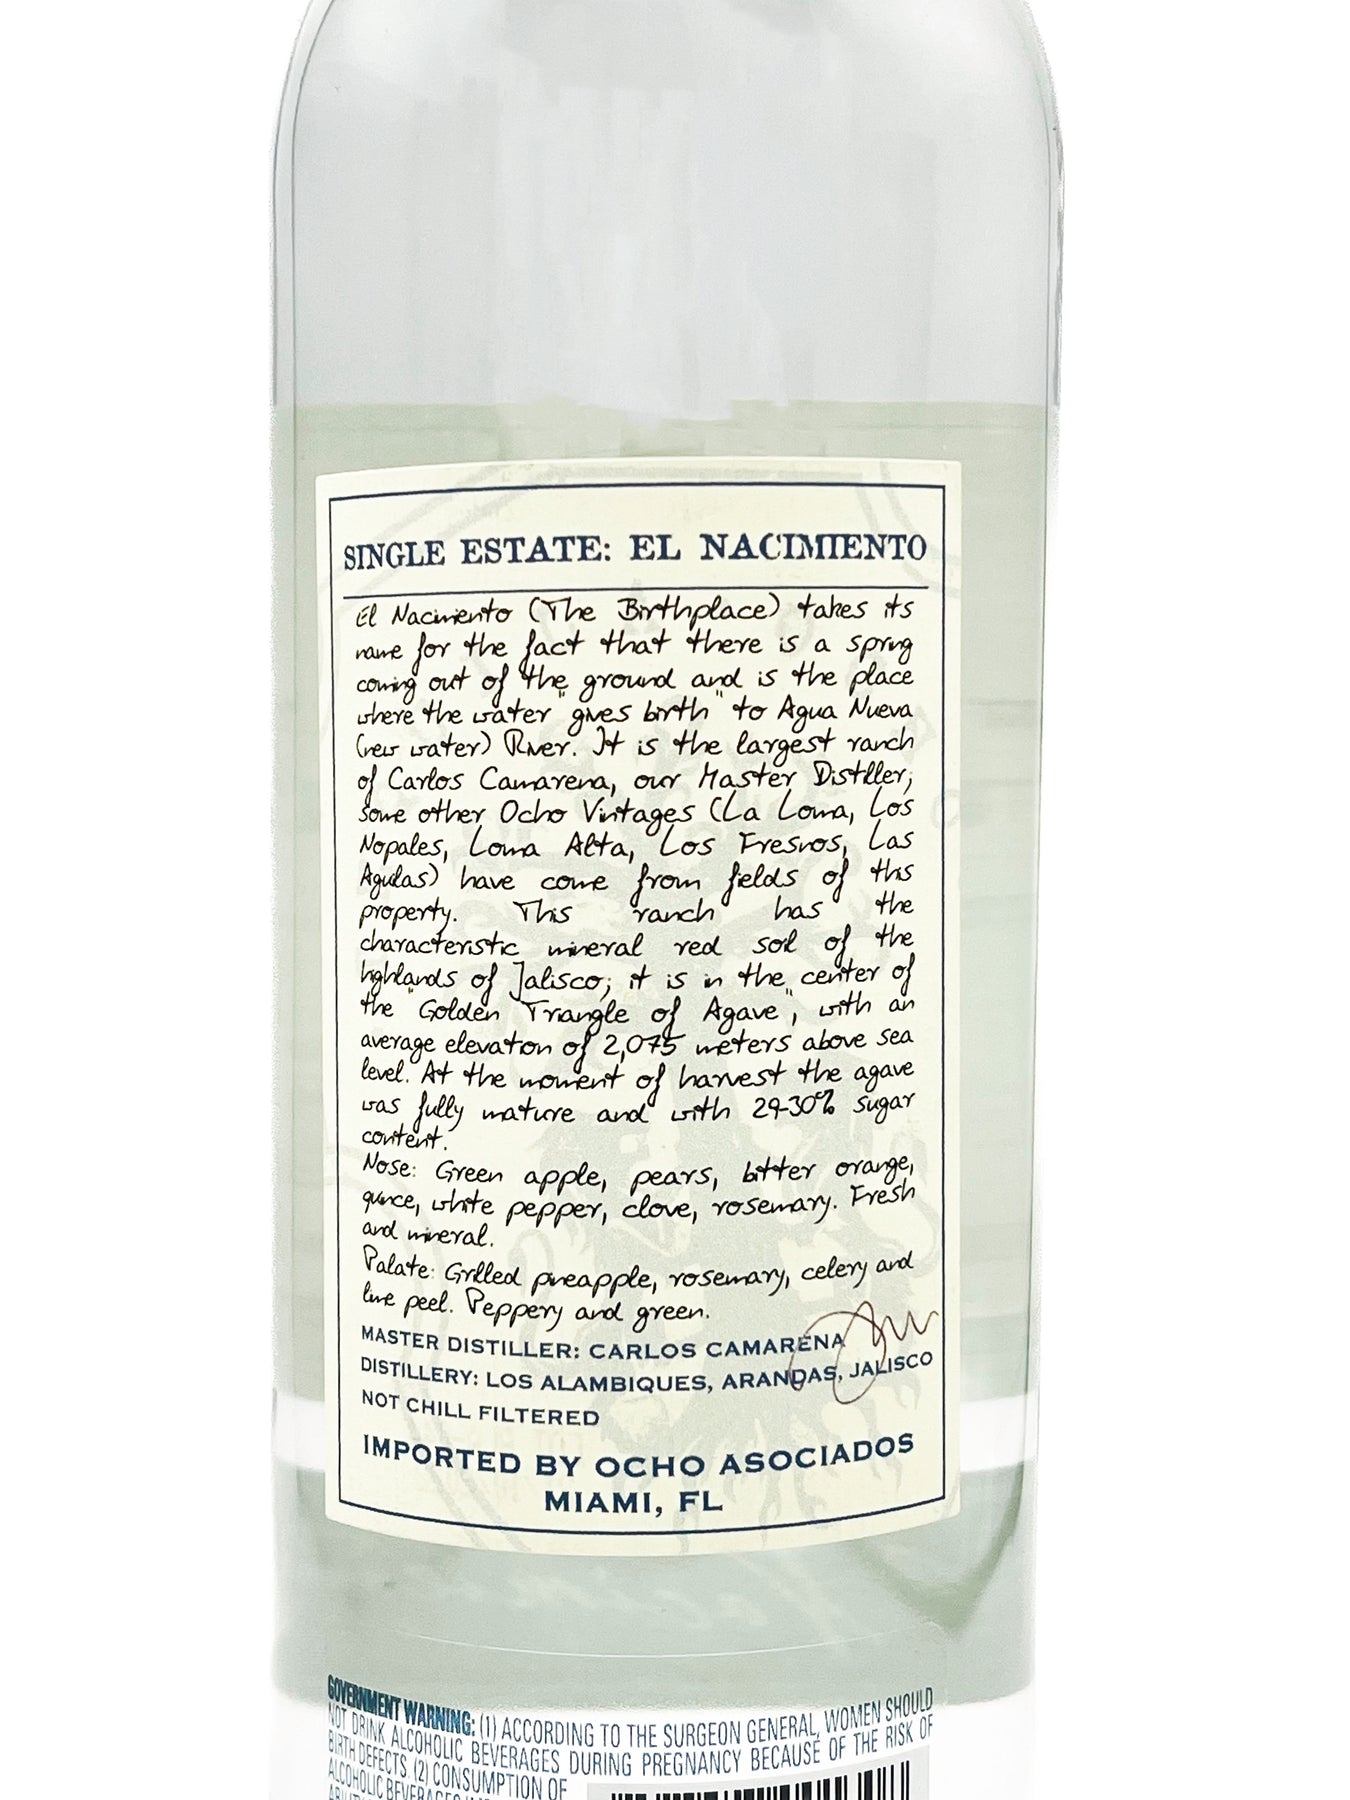 SINGLE ESTATE: EL NACIMIENTO
El Nacimiento (The Birthplace) takes its
name for the fact that there is a spring
coming out of the ground and is the place
where the water "gives birth" to Agua Nueva
(new water) River. It is the largest ranch
of Carlos Camarena, our Master Distiller;
some other Ocho Vintages (La Loma, Los
Nopales, Loma Alta, Los Fresnos, Las
Aguilas) have come from fields of this
property. This ranch has the
characteristic mineral red soil of the
highlands of Jalisco; it is in the center of
the "Golden Triangle of Agave", with an
average elevation of 2,075 meters above sea
level. At the moment of harvest the agave
was fully mature and with 29-30% sugar
content.
Nose: Green apple, pears, bitter orange,
quince, white pepper, clove, rosemary. Fresh
and mineral.
Palate: Grilled pineapple, rosemary, celery and
lime peel. Peppery and green.
MASTER DISTILLER: CARLOS CAMARENA
DISTILLERY: LOS ALAMBIQUES, ARANDAS, JALISCO
NOT CHILL FILTERED
IMPORTED BY OCHO ASOCIADOS
MIAMI, FL
GOVERNMENT WARNING: (1) ACCORDING TO THE SURGEON GENERAL, WOMEN SHOULD
NOT DRINK ALCOHOLIC BEVERAGES DURING PREGNANCY BECAUSE OF THE RISK OF
BIRTH DEFECTS. (2) CONSUMPTION OF
ALCOHOLIC BEVERAGES